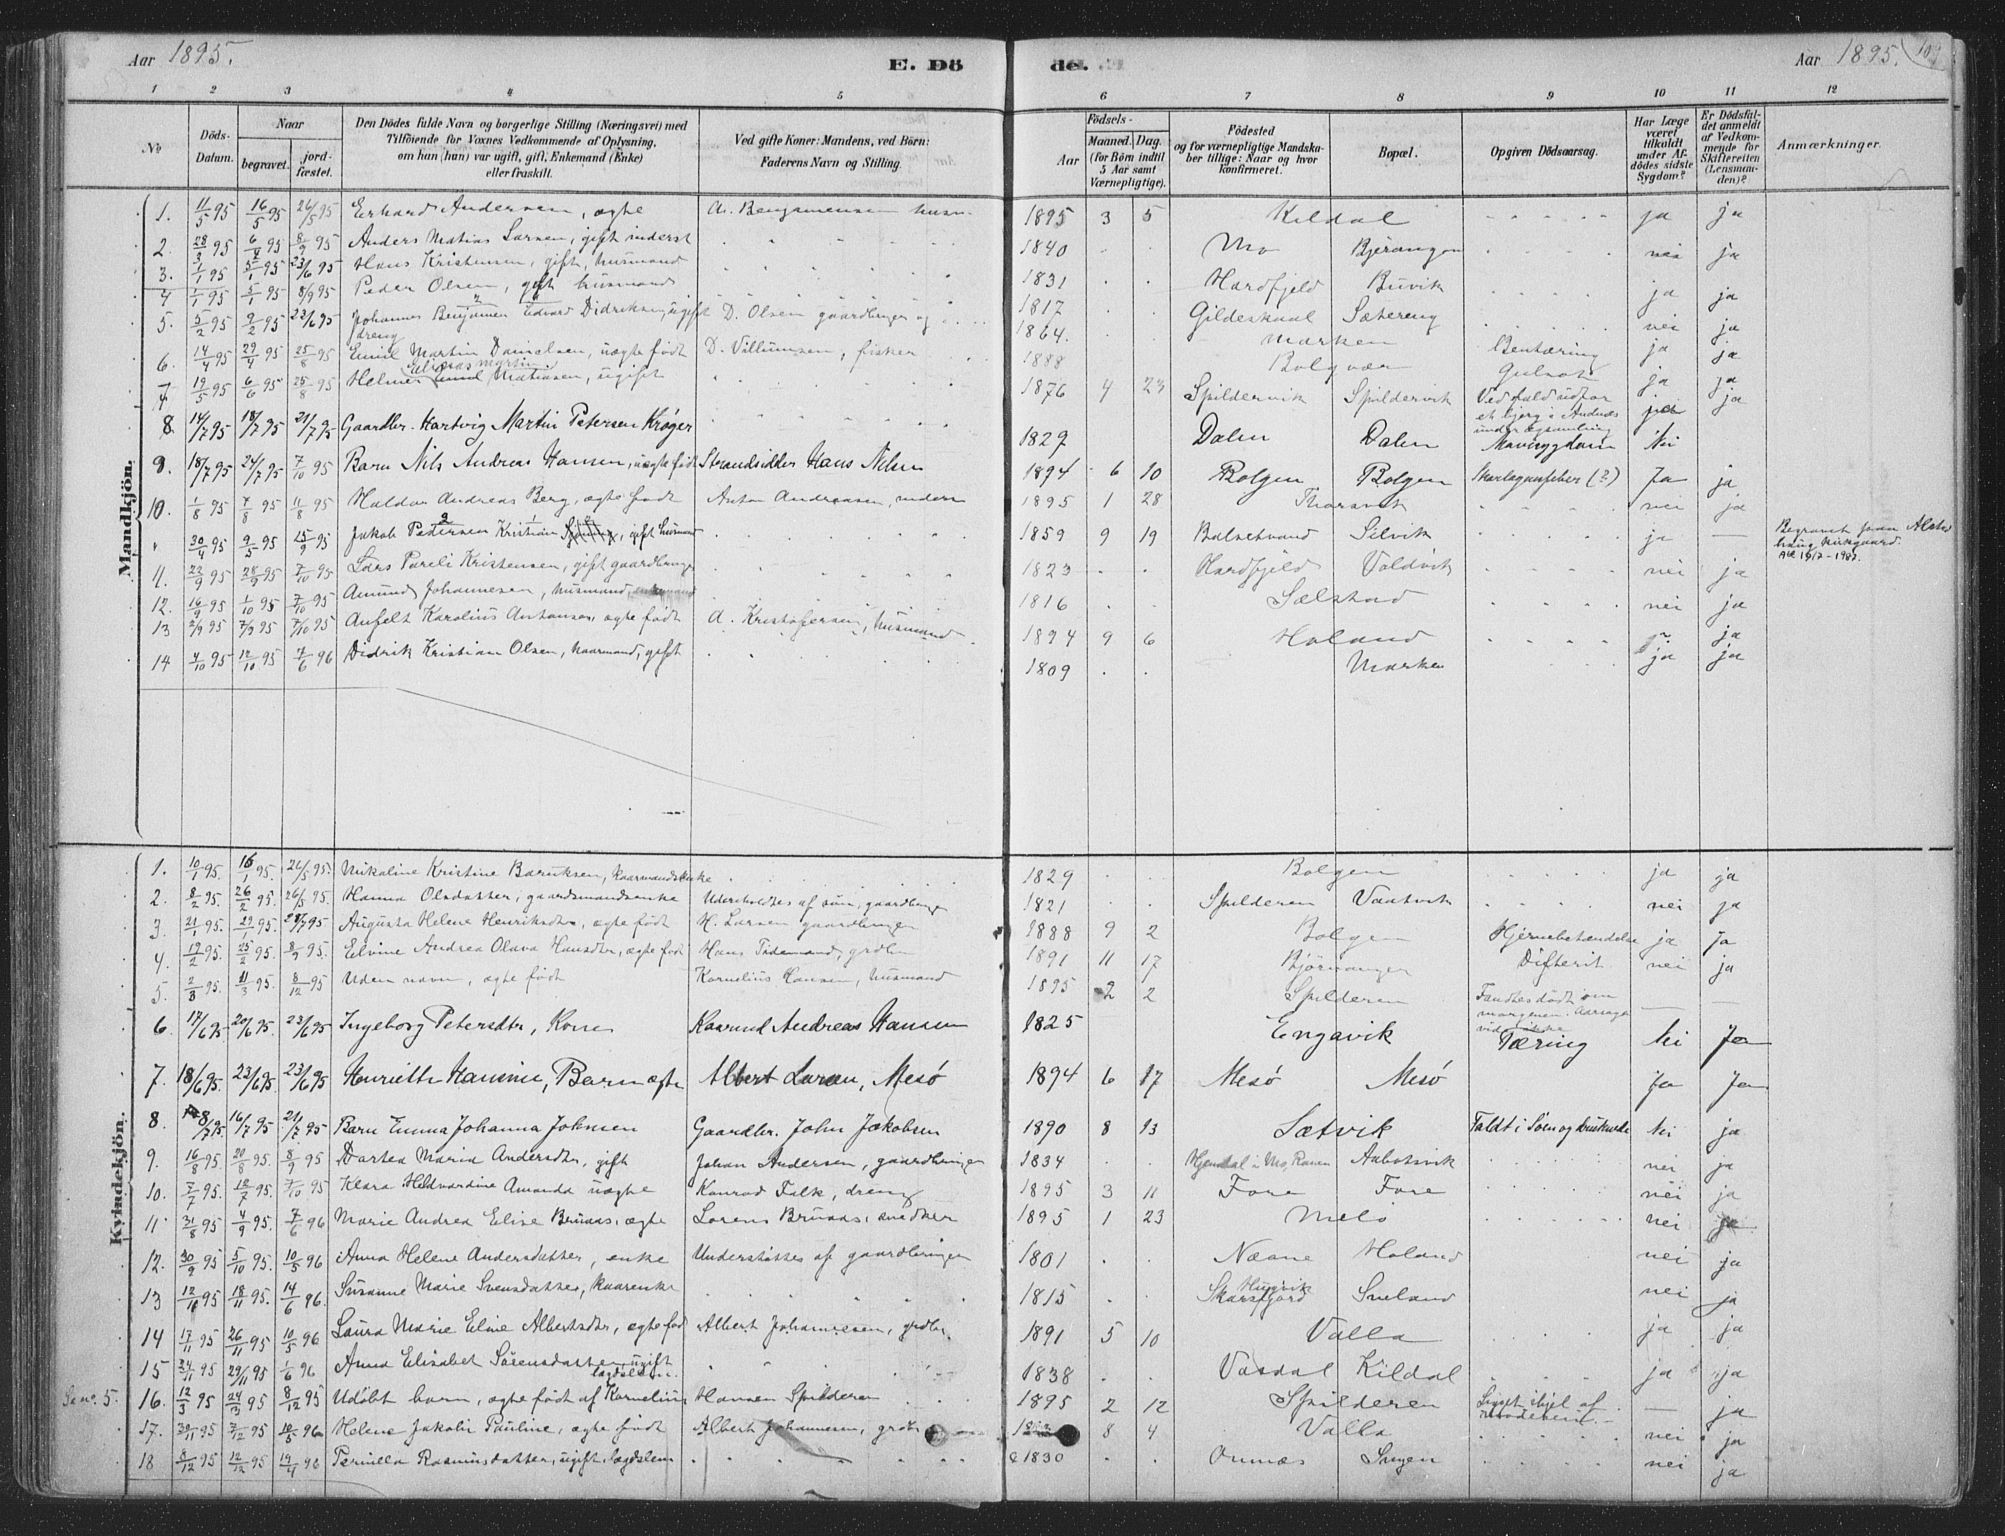 Aar 1895.
E. Dö
de.
Aar 1895.
1 2 3 4 5 6 7 8 9 10 11 12
No
Döds-Datum.
Naar
begravet.
jord-fæstet.
Den Dödes fulde Navn og borgerlige Stilling (Næringsvei) med
Tilföiende for Voxnes Vedkommende af Oplysning,
om han (hun) var ugift, gift, Enkemand (Enke)
eller fraskilt.
Ved gifte Koner: Mandens, ved Börn:
Faderens Navn og Stilling.
Födsels-
Aar
Maaned. Dag.
(for Börn indtil
5 Aar samt
Værnepligtige).
Födested
og for værnepligtige Mandska-
ber tillige: Naar og hvor
konfirmeret.
Bopæl.
Opgiven Dödsaarsag.
Har Læge
været
tilkaldt
under Af-
dödes sidste
Sygdom?
Er Dödsfal-
det anmeldt
af Vedkom-
mende for
Skifteretten
(Lensman-
den)?
Anmærkninger.
Mandkjön.
1. 11/5 95 16/5 95 26/5 95 Erhard Andersen, ægte A. Benjaminsen husm. 1895 3 5 Kildal ja ja
2. 28/3 95 6/4 95 8/9 95 Anders Matias Larsen, gift inderst 1840 Mo Bjerangen nei ja
3. 1/1 95 5/1 95 23/6 95 Hans Kristensen, gift, husmand 1831 Hardfjeld Buvik ja ja
4 1/1 95 5/1 95 8/9 95 Peder Olsen, gift husmand 1817 Gildeskaal Sætereng nei ja
5. 5/2 95 9/2 95 23/6 95 Johannes Benjamin Edvard Didriksen, ugift dreng D. Olsen gaardbruger 1864. Marken ja ja
6. 14/4 95 29/4 95 25/8 95 Emil Martin Danielsen, uægte født D. Villumsen, fisker 1888 Bolgvær Bentæring
7. 19/5 95 6/6 95 25/8 95 Helmer Matiasen, ugift 1876 4 23 Spildervik Spildervik Ved fald udfor et bjerg i Andnæs under ægsamling
8. 14/7 95 18/7 95 21/7 95 Gaardbr. Hartvig Martin Petersen Krøger 1829 Dalen Dalen Mavesygdom Nei
9. 18/7 95 24/7 95 7/10 95 Barn Nils Andreas Hansen, uægte født Strandsidder Hans Nilsen 1894 6 10 Bolgen Bolgen Skarlagensfeber (?) Ja ja
10. 1/8 95 7/8 95 11/8 95 Haldor Andreas Berg, ægte født Anton Andreasen, inderst 1895 1 28 Thorsvik nei ja
" 30/4 95 9/5 95 15/9 95 Jakob Pedersen Kristian, gift husmand 1859 9 19 Balsetvand Selvik ja — Begravet paa Alstahaug kirkegaard.
11. 22/9 95 28/9 95 7/10 95 Lars Pareli Kristensen, gift gaardbruger 1823 Hardfjeld Valdvik nei ja
12. 16/9 95 1/10 95 7/10 95 Amund Johannesen, husmand 1816 Sælstad nei ja
13 2/9 95 7/9 95 7/10 95 Anfelt Karolius Antonsen, ægte født A. Kristofersen, husmand 1894 9 6 Holand ? ja
14 4/10 95 12/10 95 7/6 96 Didrik Kristian Olsen, kaarmand, gift 1809 Marken ja ja
Kvindekjön.
1. 10/1 95. 16/1 95. 26/5 95. Nikoline Kristine Baruksen, kaarmandsenke 1829 Bolgen ja ja
2. 8/2 95. 26/2 95. 26/5 95. Hanna Olsdatter, gaardmandsenke Underholdtes af søn, gaardbruger 1821 Spilderen Vaatvik nei ja
3. 21/1 95. 29/1 95. 28/7 95 Augusta Helene Henriksdtr, ægte født H. Larsen gaardbruger 1888 9 2 Bolgen Hjernebetændelse ja ja
4. 12/2 95. 25/2 95. 8/9 95. Elvine Andrea Olava Hansdtr, ægte født Hans Tidemand, grdbr 1891 11 17 Bjørvangen Difterit nei ja
5. 2/3 95. 11/3 95. 8/12 95 Uden navn, ægte født Kornelius Hansen, husmand 1895 2 2 Spilderen Fandtes dødt om morgenen. Aarsagen vides ikke — —
6. 17/6 95 20/6 95. 23/6 95 Ingeborg Petersdtr, Kone Konrad Andreas Hansen 1825 Engavik Tæring Nei Ja
7. 18/6 95. 23/6 95. 23/6 95 Henriette Hansine, Barn ægte Albert Larsen, Mesø 1894 6 17 Mesø Mesø Ja Ja
8. 8/7 95. 16/7 95 21/7 95 Barn Emma Johanna Johnsen Gaardbr. John Jakobsen 1890 8 13 Sætvik Faldt i Søen og druknede Nei ja
9. 16/8 95. 20/8 95. 8/9 95 Dortea Maria Andersdtr, gift Johan Andersen, gaardbruger 1834 Hjemdal i Mo, Ranen Aabotsvik nei ja
10. 7/7 95. 12/7 95. 7/10 95 Klara Hildvardine Amanda uægte Konrad Falk, dreng 1895 3 11 Fore Fore nei ja
11 31/8 95 4/9 95. 7/6 96 Marie Andrea Elise Bruaas, ægte Lorens Bruaas, snedker 1895 1 23 Melö nei ja
12. 30/9 95 5/10 95. 10/5 96 Anna Helene Andersdatter, enke Understöttes af gaardbrugeren 1801 Næsne Holand nei ja
13 12/11 95 18/11 95. 14/6 96. Susanne Marie Svensdatter, kaarenke 1815 Skarsfjord Sneland nei ja
14 17/11 95 26/11 95 10/5 96 Laura Marie Eline Albertsdtr, ægte født Albert Johannesen, grdbr. 1891 5 10 Valla ja ja
15 24/11 95 29/11 95 1/6 96 Anna Elisabet Sörensdatter ugift lægdslem. 1838 Vasdal Kildal ja ja
Se no. 5. 16. 12/3 95 24/3 95 8/12 95 Udöbt barn, ægte født af Kornelius Hansen Spilderen 1895 2 12 Spilderen Ligget ihjel af moderen. — ja
17. 30/11 95 7/12 95 10/5 96 Helene Jakobi Pauline, ægte født Albert Johannesen, grdbr 8 4 Valla nei ja
18 8/12 95 12/12 95 19/4 96 Pernilla Rasmusdatter, ugift, lægdslem 1830 Ornæs Sngen nei ja